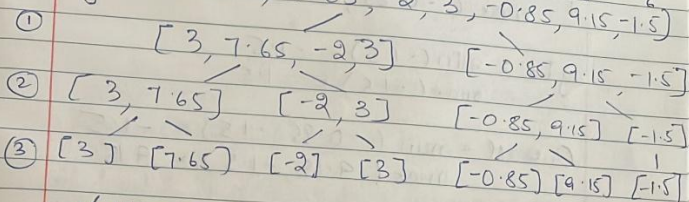 3, -0.85, 9.15, -1.5]
① [3, 7.65, -2, 3] [-0.85, 9.15, -1.5]
② [3, 7.65] [-2, 3] [-0.85, 9.15] [-1.5]
③ [3] [7.65] [-2] [3] [-0.85] [9.15] [-1.5]